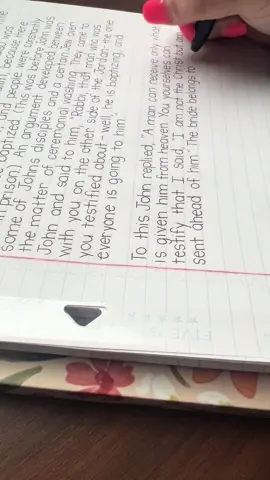 baptized. (This was before John was
in prison). An argument developed between
some of John's disciples and a certain Jew over
the matter of ceremonial washing. They came to
John and said to him, "Rabbi, that man who was
with you on the other side of the Jordan-the one
you testified about-well, he is baptizing, and
everyone is going to him."
To this John replied, "A man can receive only what
is given him from heaven. You yourselves can
testify that I said, 'I am not the Christ but am
sent ahead of him.' The bride belongs to
FIVE S